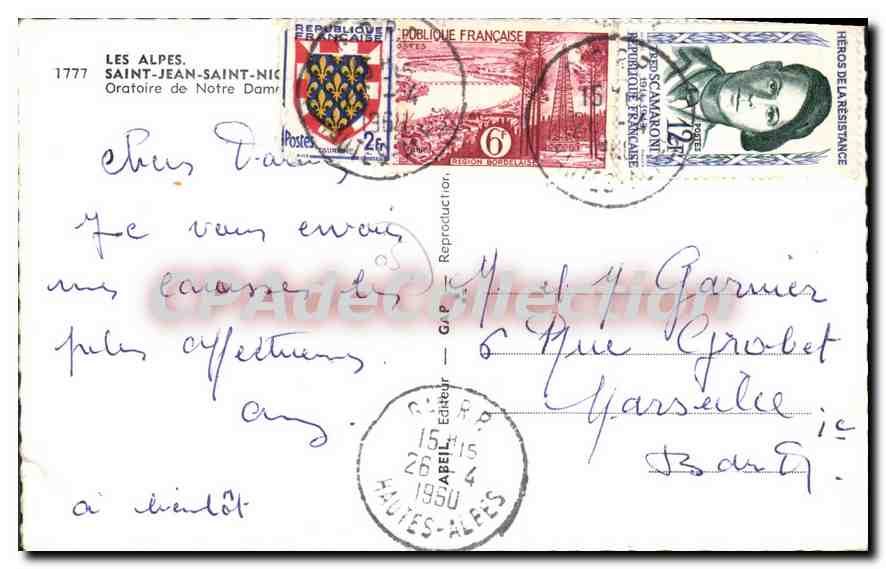 LES ALPES.
1777 SAINT-JEAN-SAINT-NIC
Oratoire de Notre Dame
REPUBLIQUE FRANÇAISE
Postes 2F
RÉPUBLIQUE FRANÇAISE
POSTES
6F
RÉGION BORDELAISE
HÉROS DE LA RÉSISTANCE
POSTES
12F
SCAMARONI
RÉPUBLIQUE FRANÇAISE
Chers
Je vous envoie
mes caresses les
plus affectueuses
à bientôt
ABEIL, Editeur — GAP — Reproduction
M et M Garnier
6 Rue Grobet
Marseille
1e
B du R
15H15
26 - 4
1960
HAUTES-ALPES
CPAdeCollection